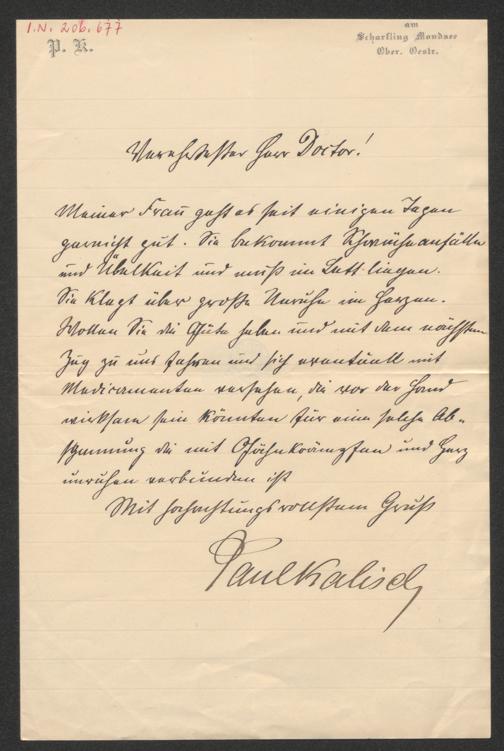 I.N. 206.677
P. K.
am
Scharfling Mondsee
Ober. Oestr.
Verehrtester Herr Doctor!
Meiner Frau geht es seit einigen Tagen
garnicht gut. Sie bekommt Schwächeanfälle
und Übelkeit und muß im Bett liegen.
Sie klagt über große Unruhe im Herzen.
Wollen Sie die Güte haben und mit dem nächsten
Zug zu uns fahren und sich eventuell mit
Medicamenten versehen, die vor der Hand
wirksam sein könnten für eine solche Ab-
spannung die mit Gähnkrämpfen und Herz
unruhen verbunden ist
Mit hochachtungsvollstem Gruß
Paul Kalisch